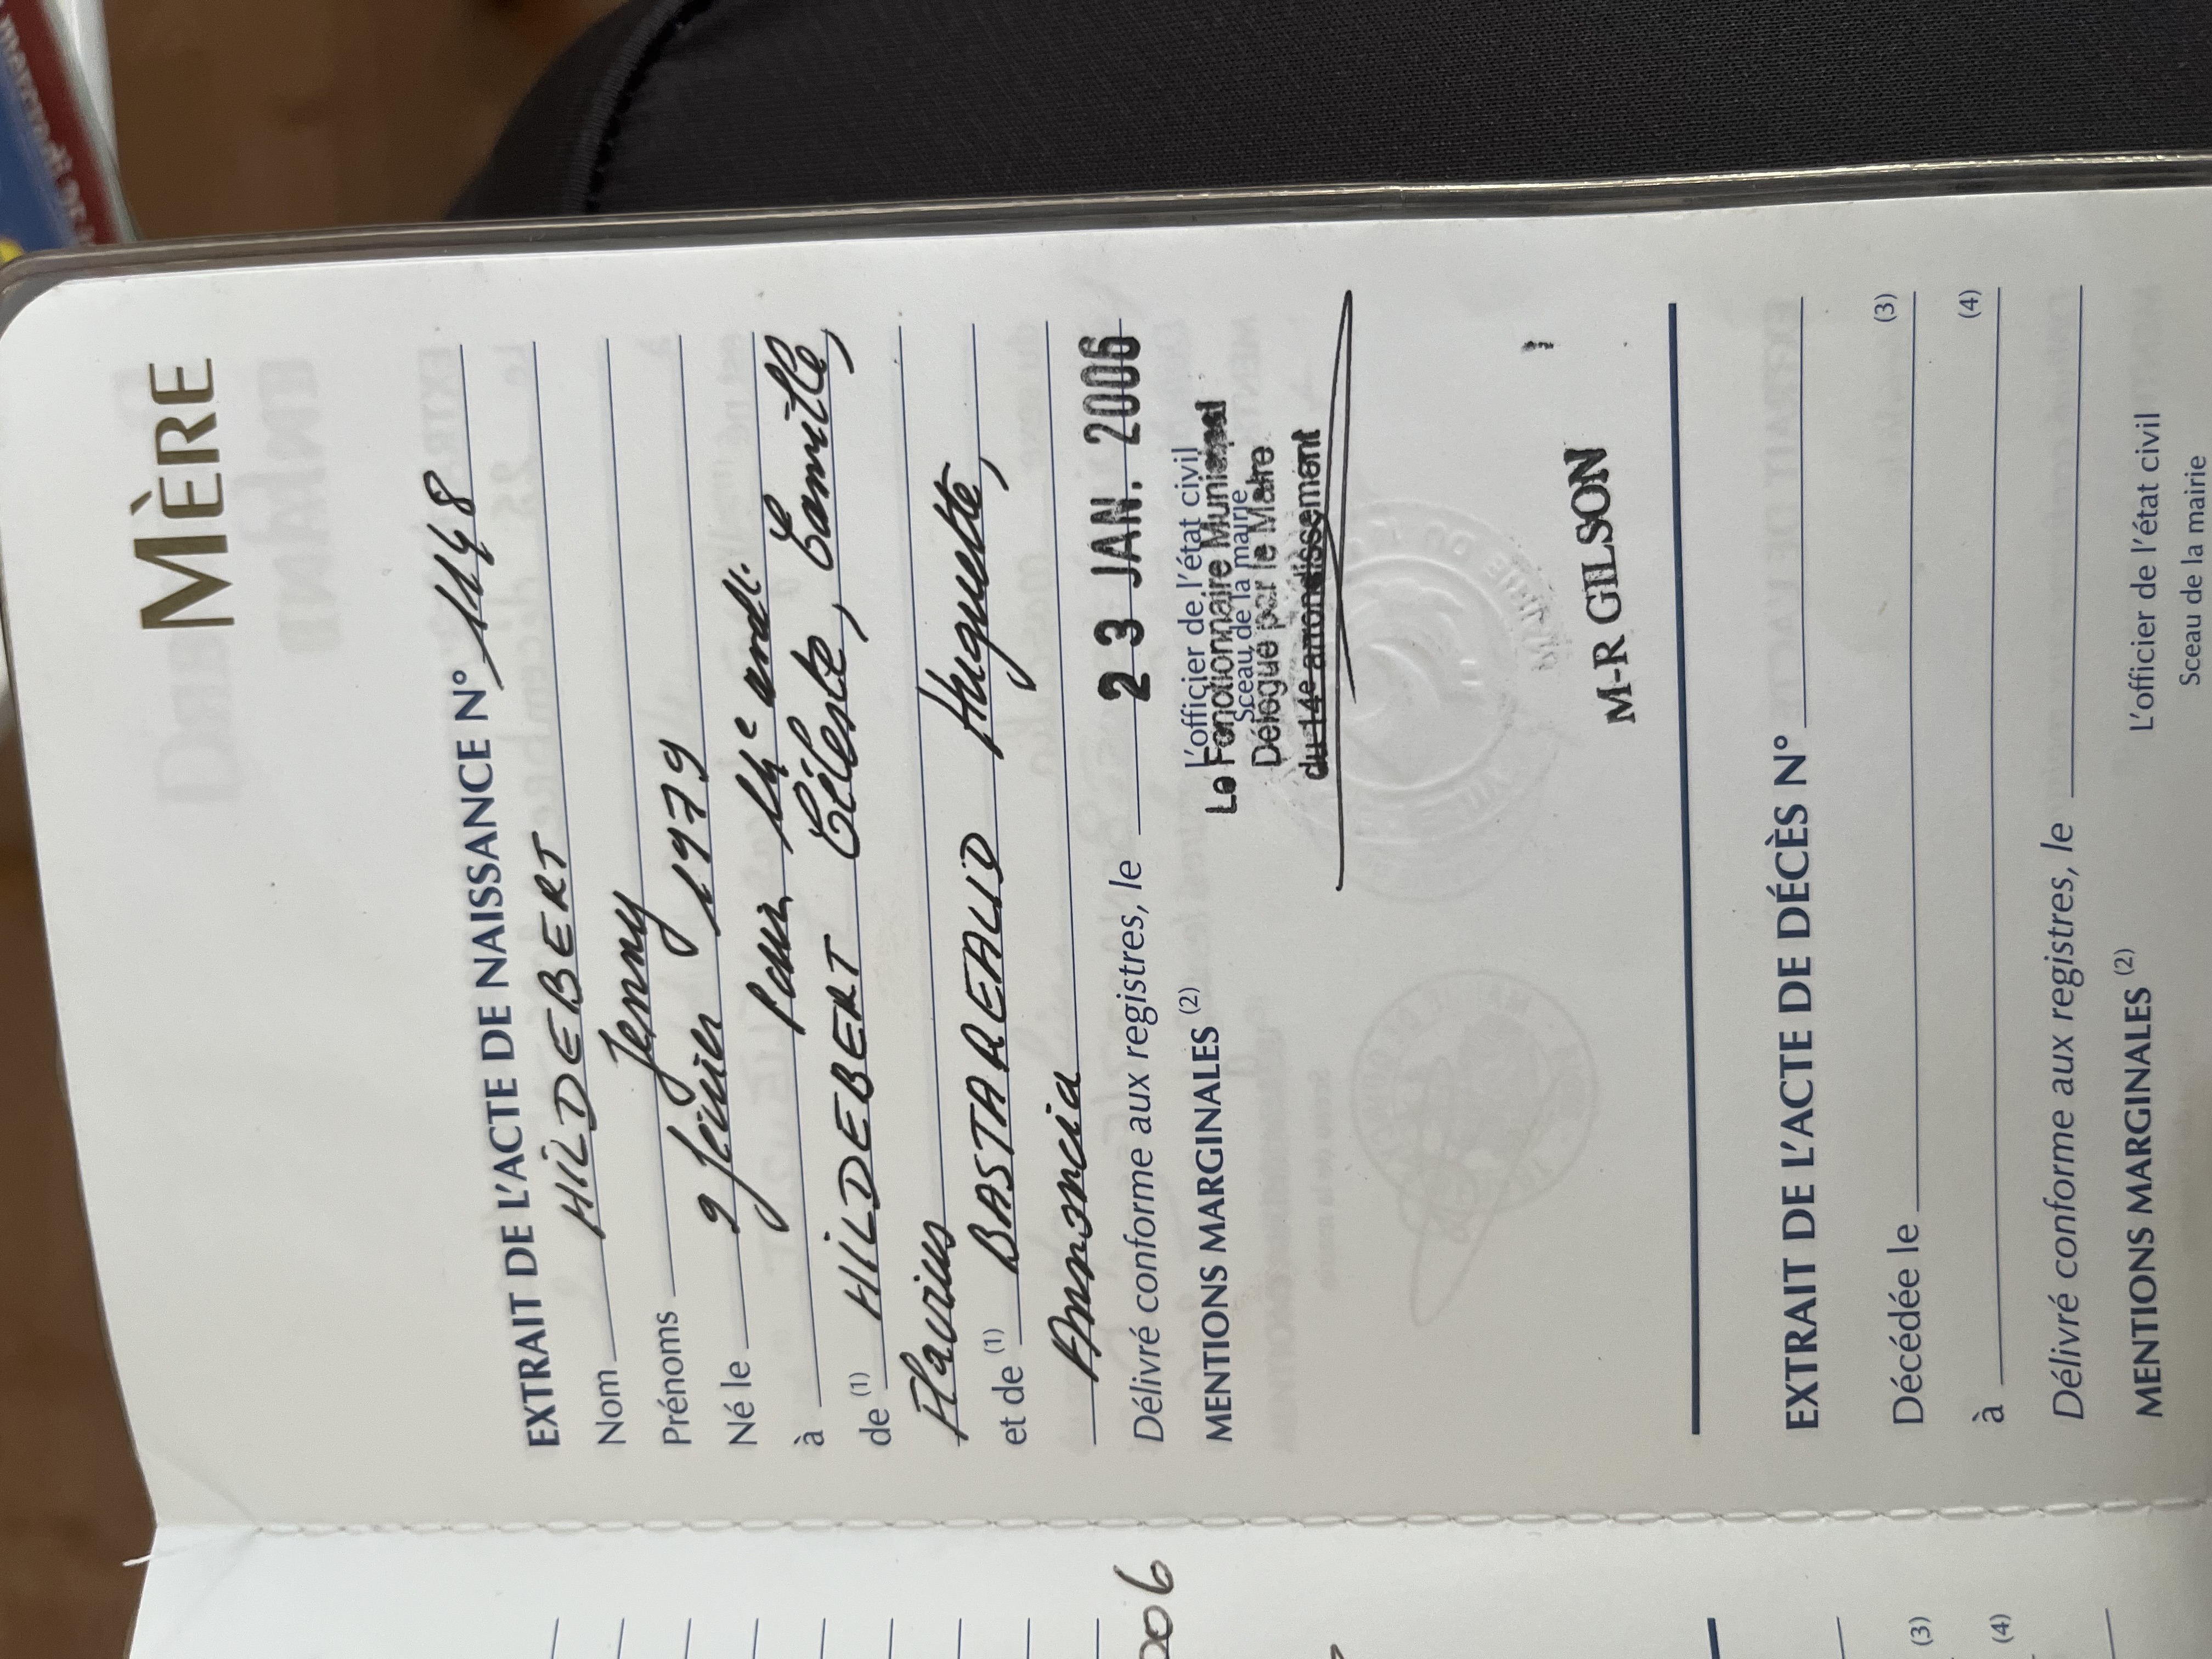 MÈRE
EXTRAIT DE L'ACTE DE NAISSANCE N° 1148
Nom HILDEBERT
Prénoms Jenny
Né le 9 février 1979
à Paris 14e arrdt.
de (1) HILDEBERT Céleste, Camille,
Flavius
et de (1) BASTAREAUD Huguette,
Amancia
Délivré conforme aux registres, le 23 JAN. 2006
MENTIONS MARGINALES (2)
L'officier de l'état civil
Le Fonctionnaire Municipal
Sceau de la mairie
Délégué par le Maire
du 14e arrondissement
M-R GILSON
EXTRAIT DE L'ACTE DE DÉCÈS N°
Décédée le (3)
à (4)
Délivré conforme aux registres, le
MENTIONS MARGINALES (2)
L'officier de l'état civil
Sceau de la mairie
006
(3)
(4)